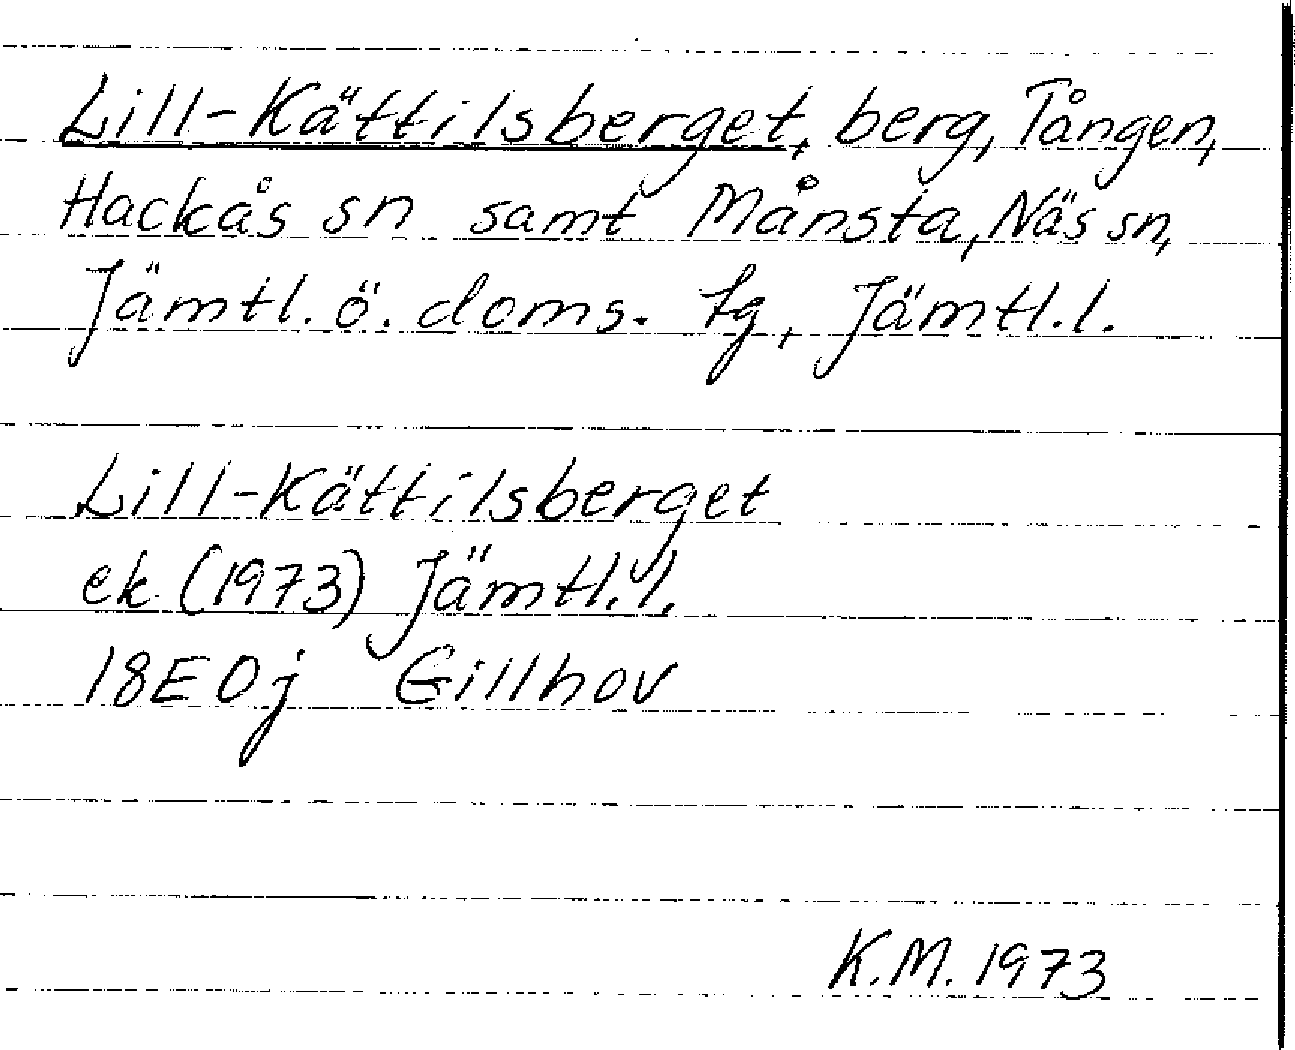 Lill-Kättilsberget, berg, Tången,
Hackås sn samt Månsta, Näs sn,
Jämtl. ö. doms. tg, Jämtl.l.
Lill-Kättilsberget
ek (1973) Jämtl.l.
18E0j Gillhov
K.M. 1973